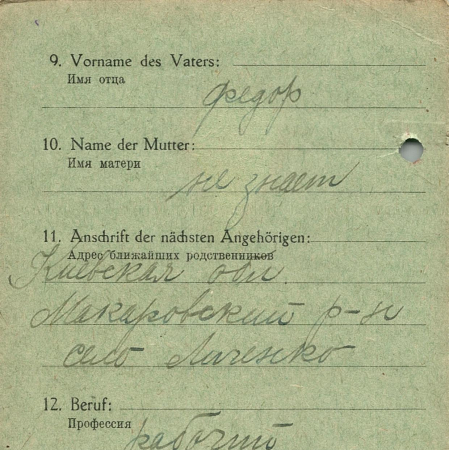 9. Vorname des Vaters:
Имя отца
Федор
10. Name der Mutter:
Имя матери
не знает
11. Anschrift der nächsten Angehörigen:
Адрес ближайших родственников
Киевская обл
Макаровский р-н
село Личенко
12. Beruf:
Профессия
рабочий